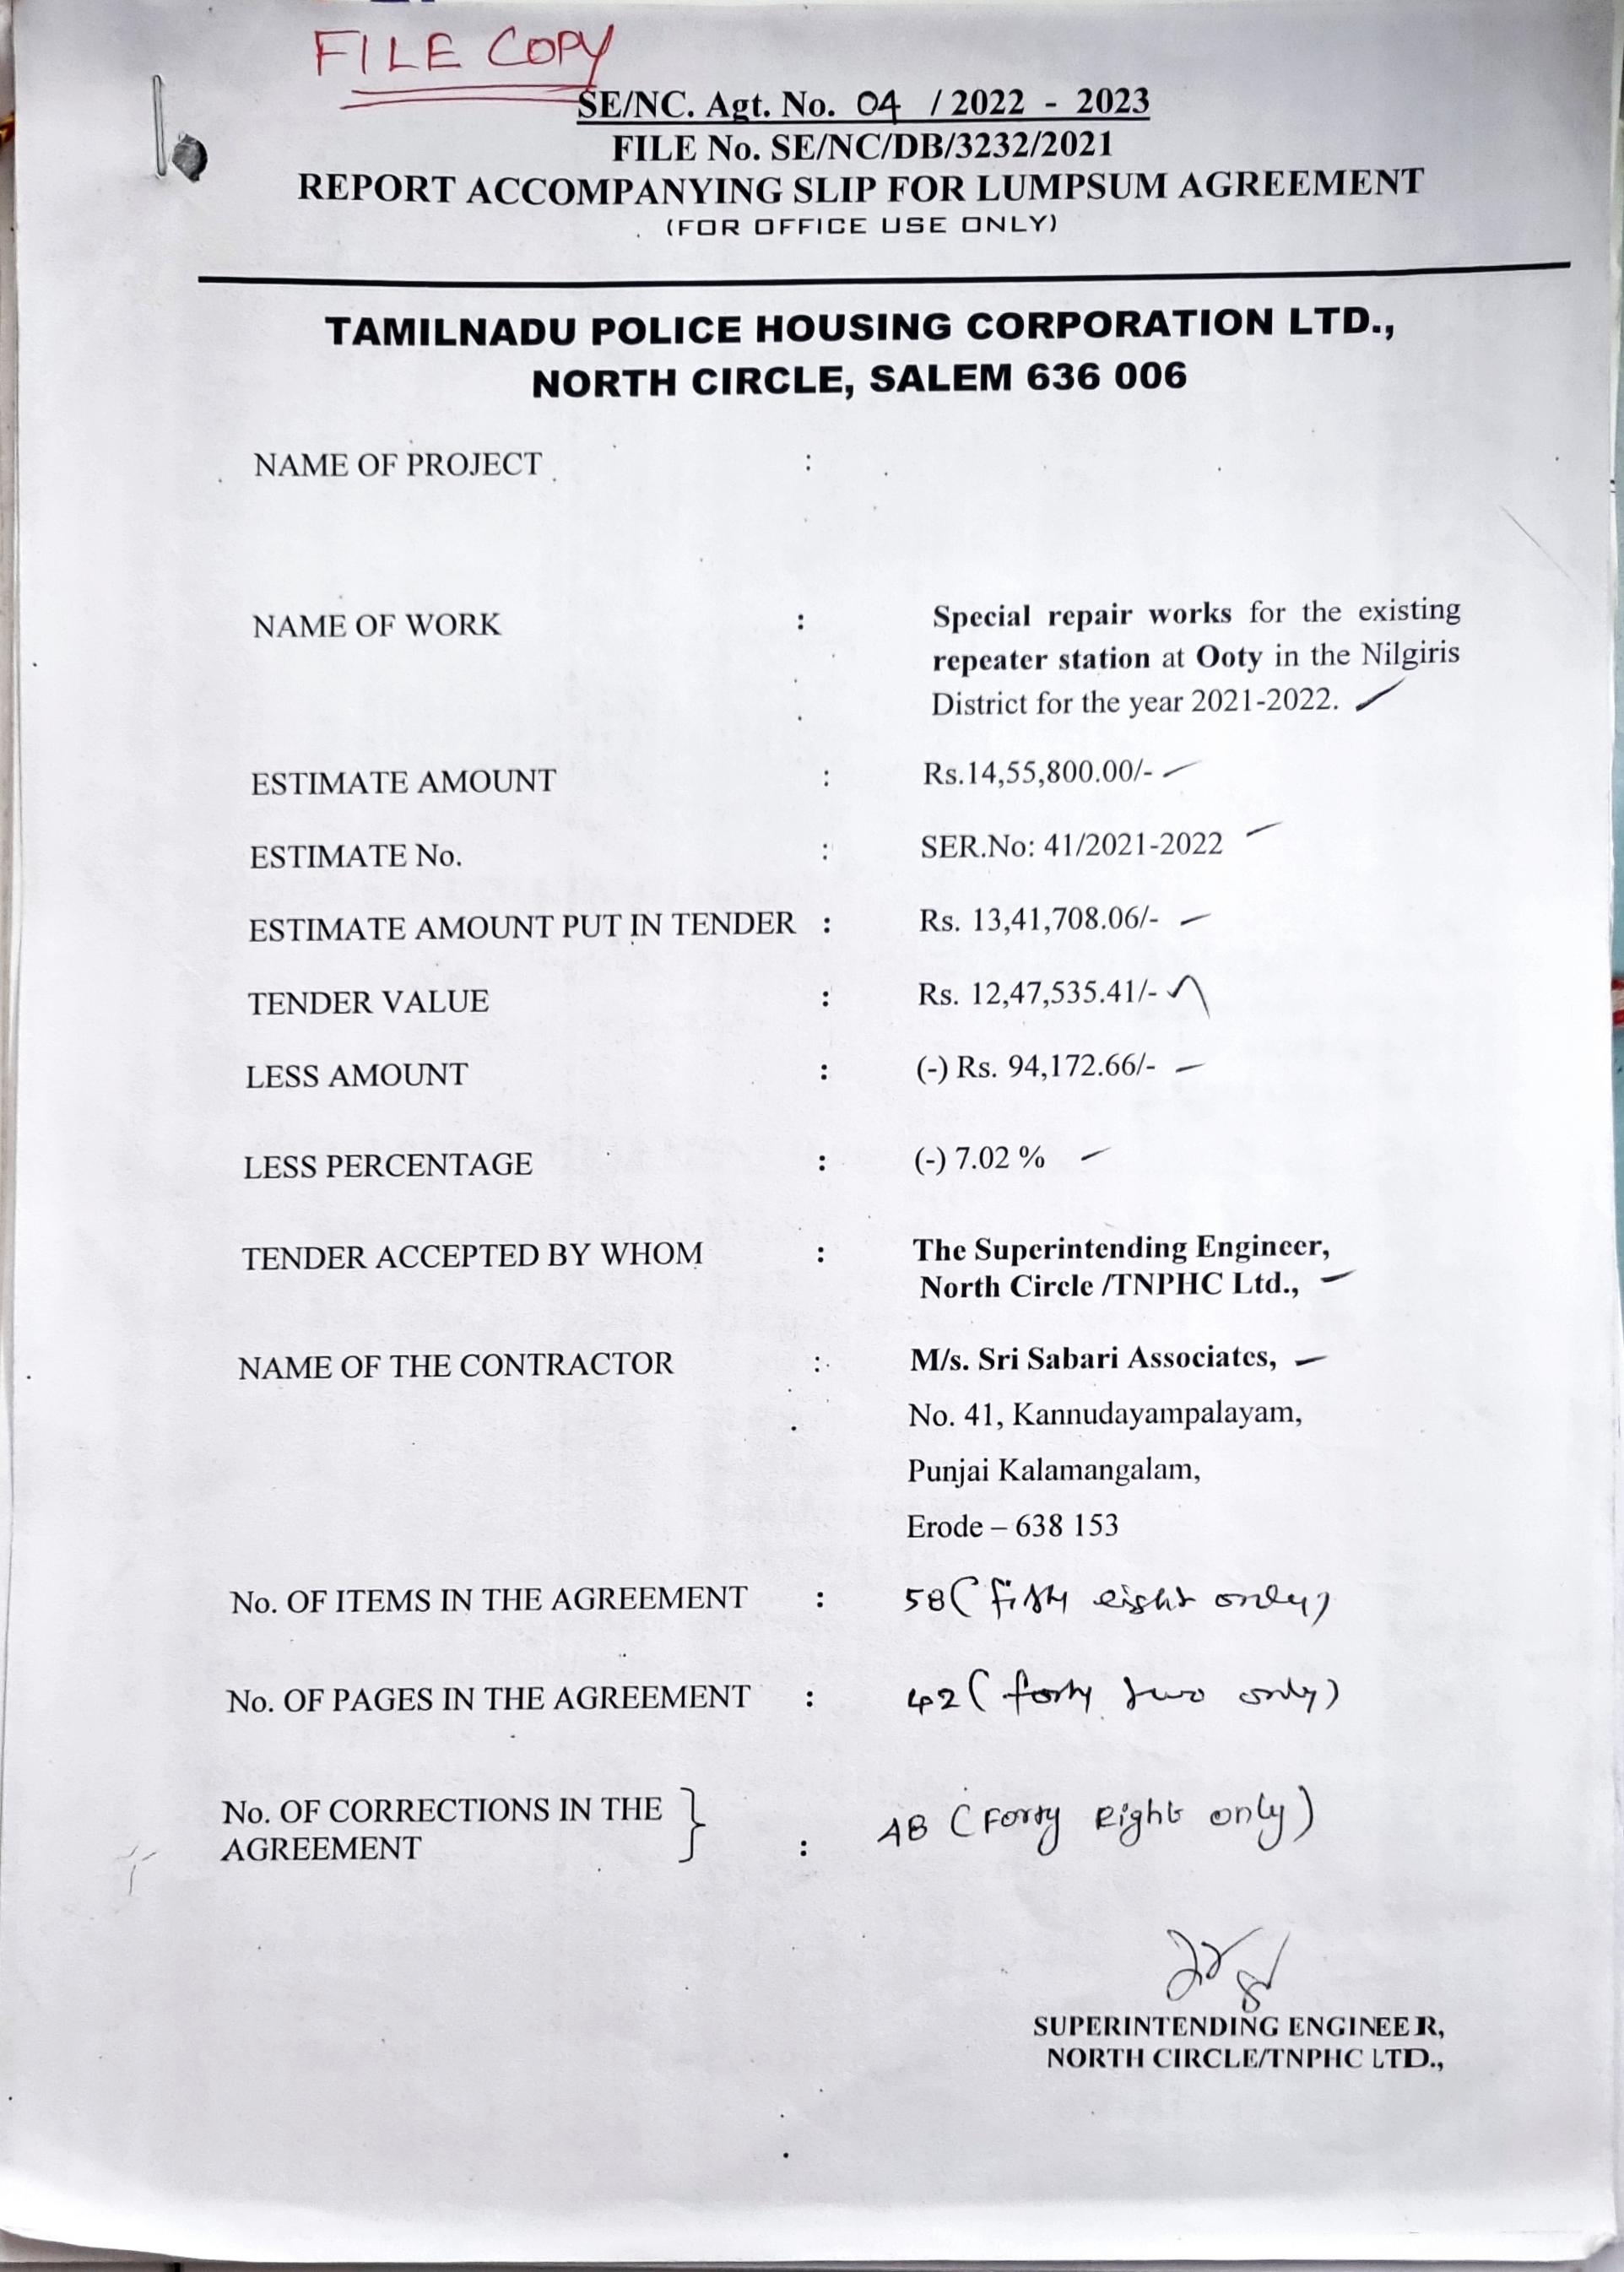 FILE COPY
SE/NC. Agt. No. 04 / 2022 - 2023
FILE No. SE/NC/DB/3232/2021
REPORT ACCOMPANYING SLIP FOR LUMPSUM AGREEMENT
(FOR OFFICE USE ONLY)
TAMILNADU POLICE HOUSING CORPORATION LTD.,
NORTH CIRCLE, SALEM 636 006
NAME OF PROJECT :
NAME OF WORK : Special repair works for the existing
repeater station at Ooty in the Nilgiris
District for the year 2021-2022.
ESTIMATE AMOUNT : Rs.14,55,800.00/-
ESTIMATE No. : SER.No: 41/2021-2022
ESTIMATE AMOUNT PUT IN TENDER : Rs. 13,41,708.06/-
TENDER VALUE : Rs. 12,47,535.41/-
LESS AMOUNT : (-) Rs. 94,172.66/-
LESS PERCENTAGE : (-) 7.02 %
TENDER ACCEPTED BY WHOM : The Superintending Engineer,
North Circle /TNPHC Ltd.,
NAME OF THE CONTRACTOR : M/s. Sri Sabari Associates,
No. 41, Kannudayampalayam,
Punjai Kalamangalam,
Erode – 638 153
No. OF ITEMS IN THE AGREEMENT : 58 ( fifty eight only)
No. OF PAGES IN THE AGREEMENT : 42 ( forty two only)
No. OF CORRECTIONS IN THE
AGREEMENT : 48 (Forty Eight only)
SUPERINTENDING ENGINEER,
NORTH CIRCLE/TNPHC LTD.,